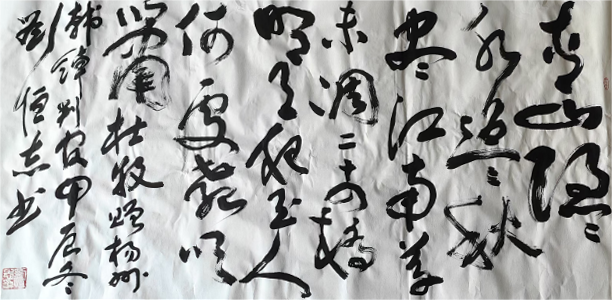 青山隐〻
水迢〻秋
尽江南草
未凋二十四橋
明月夜玉人
何处教吹
箫杜牧赠杨州
韩绰判官甲辰冬
刘恒志书